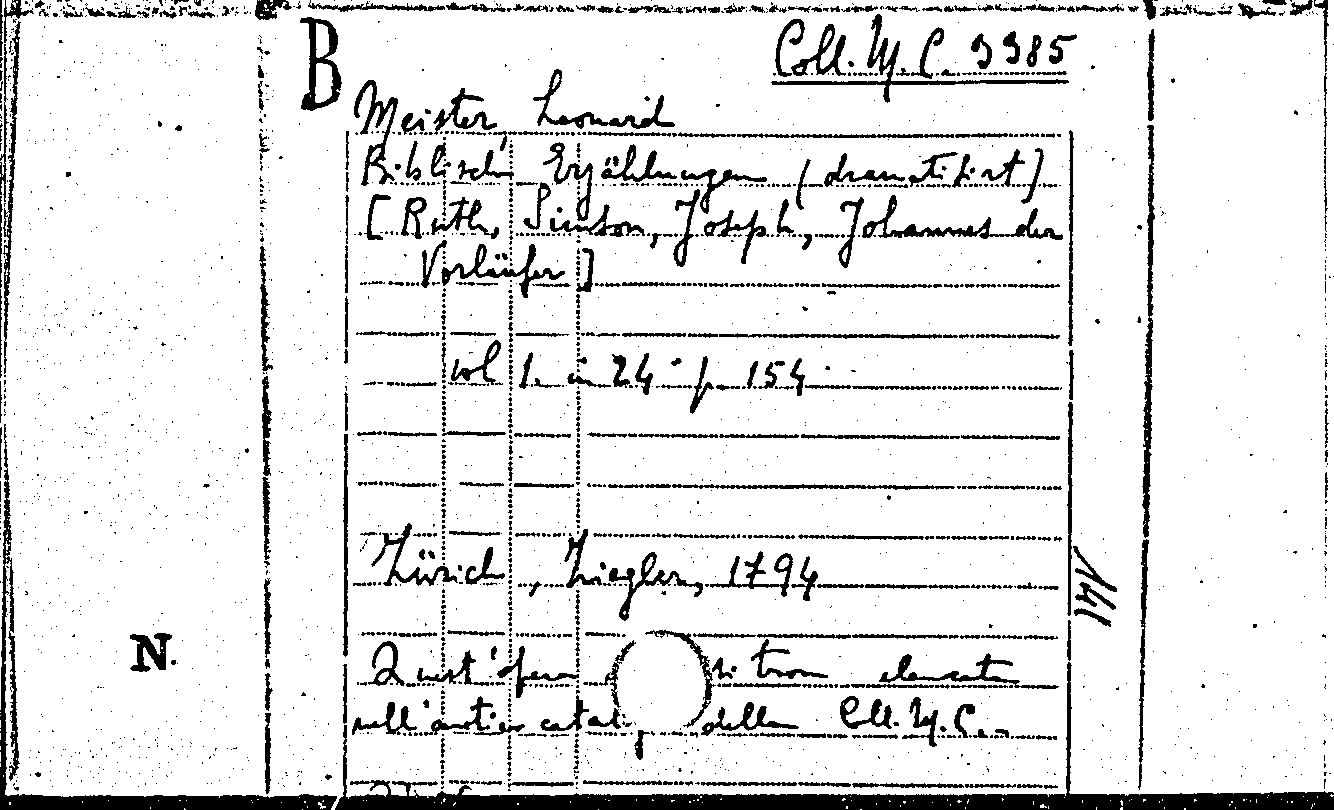 B
Coll. M. C. 9985
Meister, Leonard
Biblische Erzählungen (dramatisirt]
[Ruth, Simson, Joseph, Johannes der
Vorläufer]
vol 1. in 24° p. 154
Zürich, Ziegler, 1794
141
N.
Quest'opera si trova elencata
nell'antico catal. della Coll. M. C.